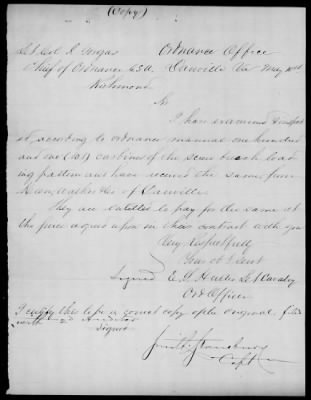 (Copy)
Lt Col J Gorgas Ordnance Office
Chief of Ordnance C.S.A. Danville Va May
Richmond
Sir
I have examined &
according to Ordnance Manual one hundred
and one (101) carbines of the same breach load
ing pattern and have received the same from
Keen, Walker & Co of Danville
They are entitled to pay for the same at
the price agreed upon in their contract with you
Very Respectfully
Your obt Servt
Signed E. S. Lt Cavalry
Ord Officer
I certify this to be a correct copy of the original filed
with 2nd Auditor
Signed
Smith Stansbury
Capt